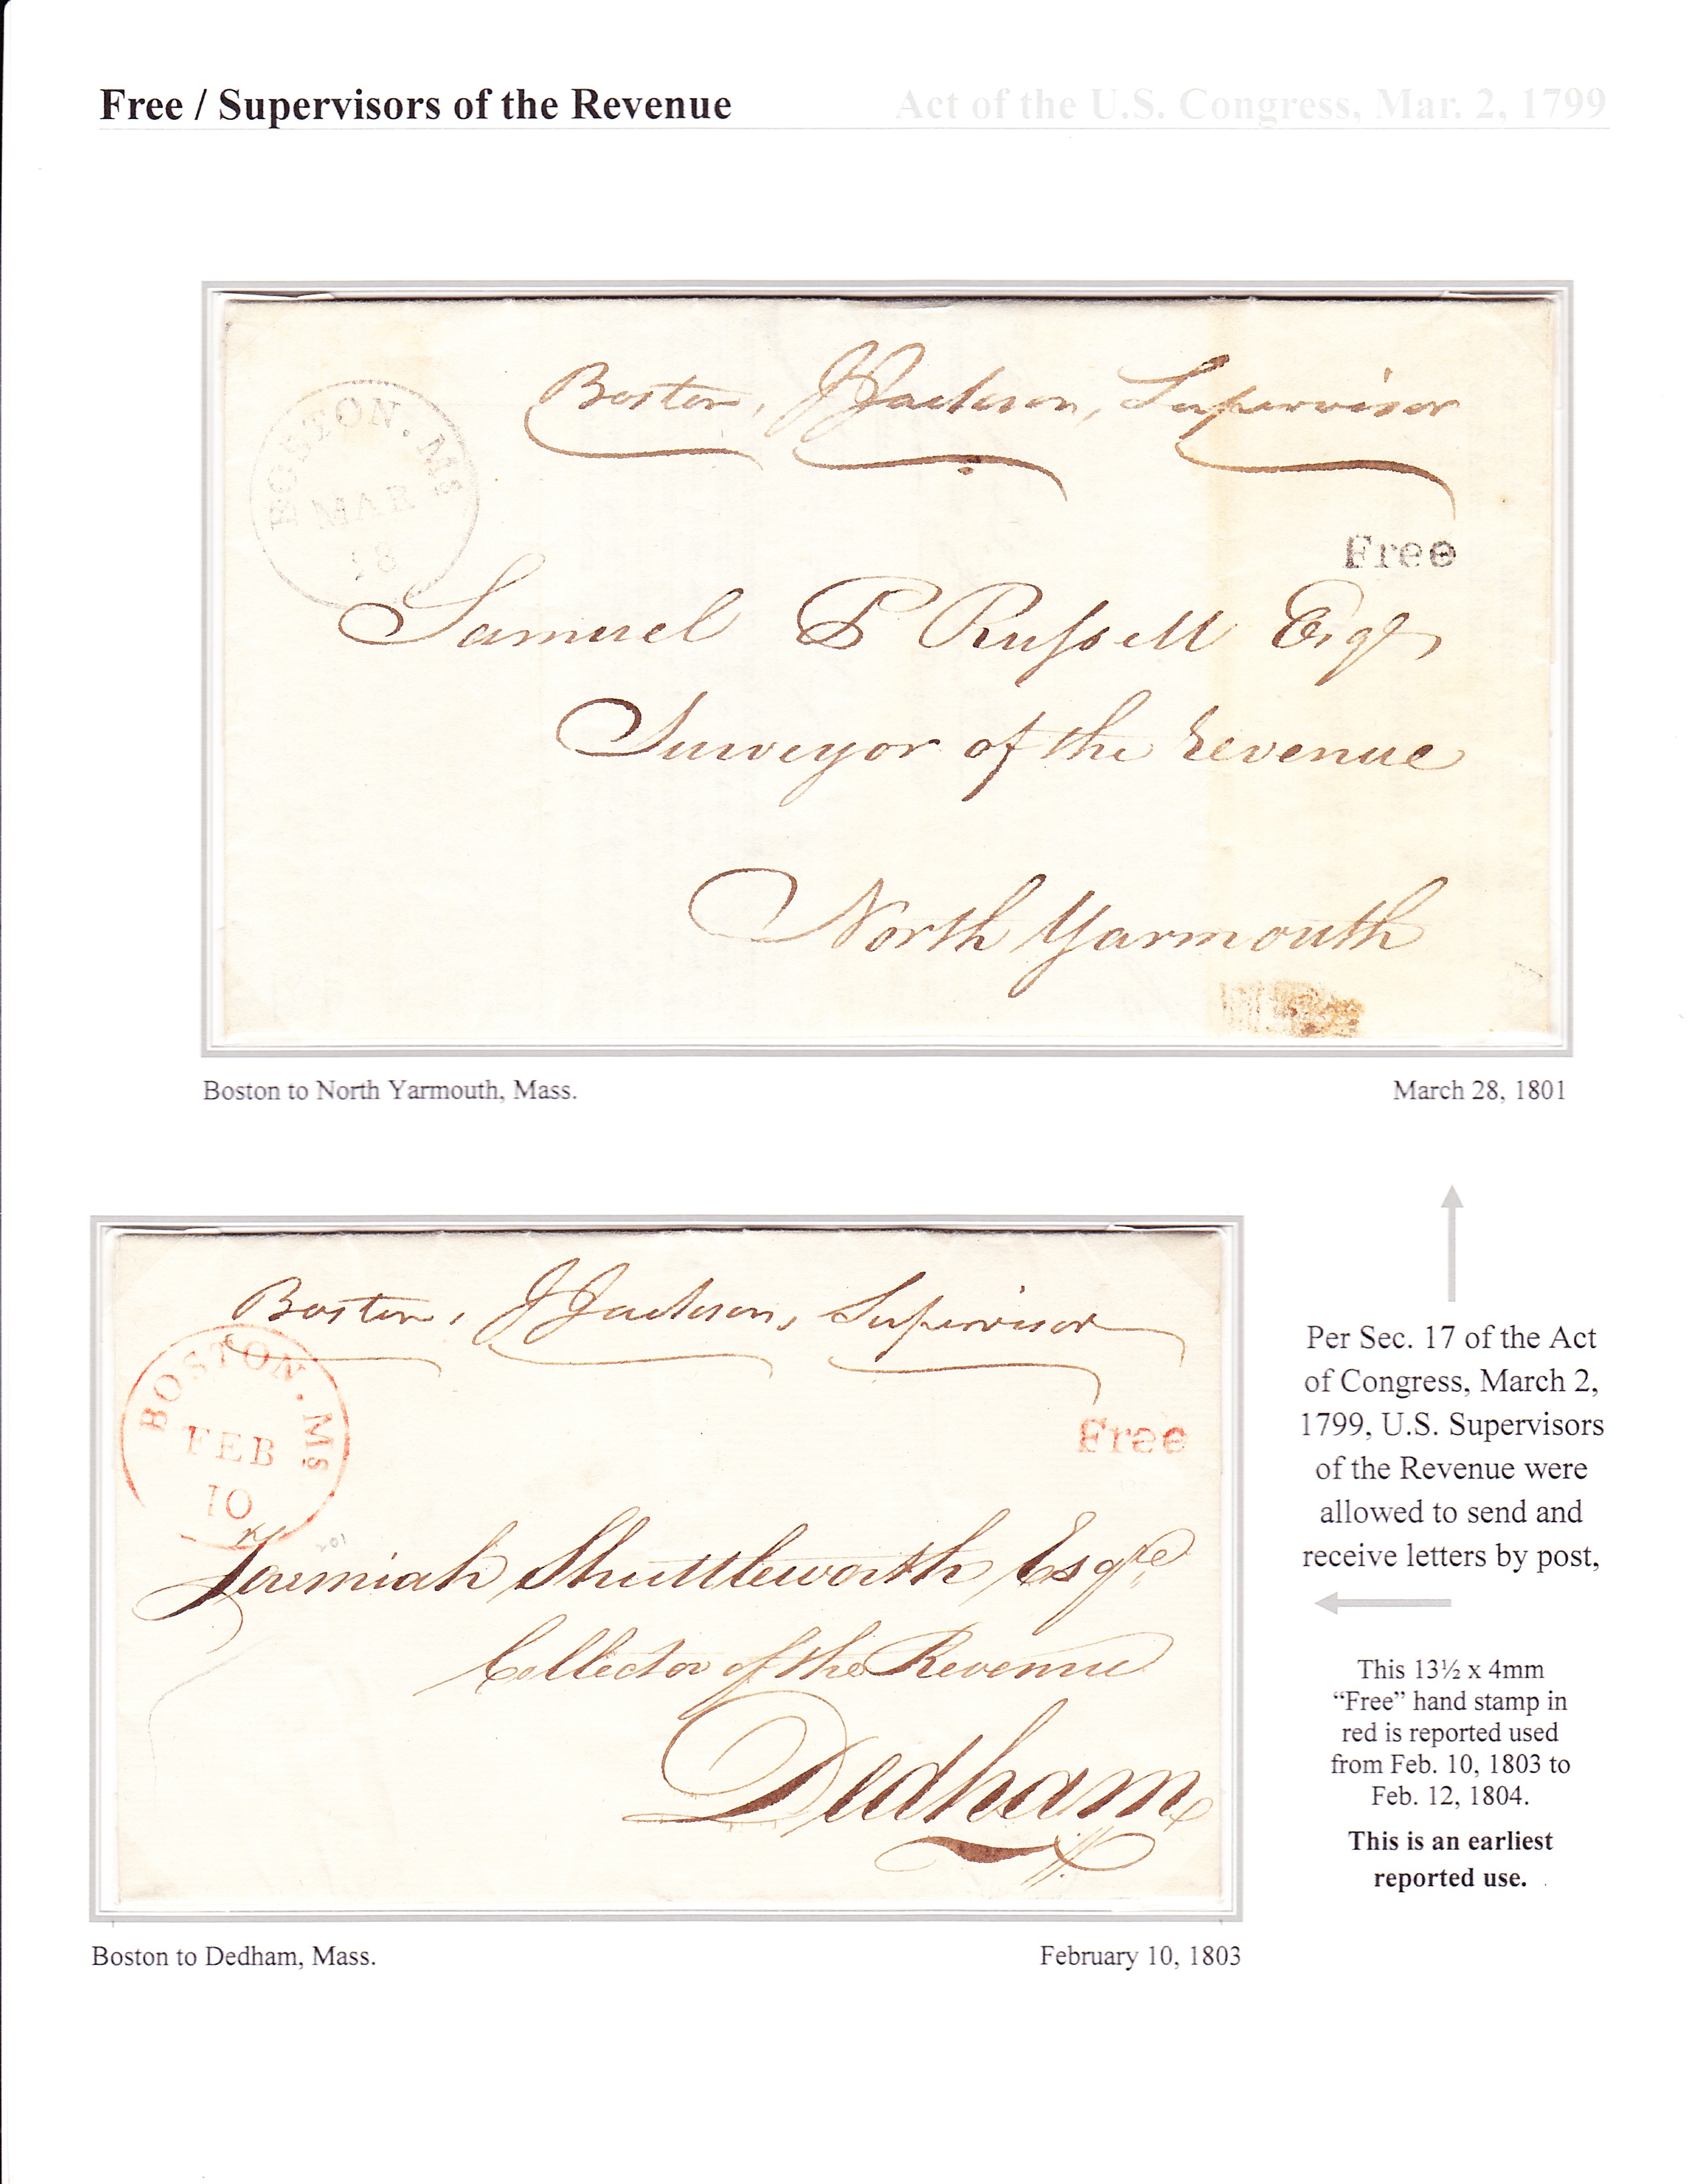 Free / Supervisors of the Revenue
Act of the U.S. Congress, Mar. 2, 1799
Boston, J Jackson, Supervisor
BOSTON. Ms
MAR
28
Free
Samuel P Russell Esqr
Surveyor of the Revenue
North Yarmouth
Boston to North Yarmouth, Mass.
March 28, 1801
Boston, J Jackson, Supervisor
BOSTON. Ms
FEB
10
Free
Jeremiah Shuttleworth Esqre
Collector of the Revenue
Dedham
Boston to Dedham, Mass.
February 10, 1803
Per Sec. 17 of the Act
of Congress, March 2,
1799, U.S. Supervisors
of the Revenue were
allowed to send and
receive letters by post,
This 13½ x 4mm
“Free” hand stamp in
red is reported used
from Feb. 10, 1803 to
Feb. 12, 1804.
This is an earliest
reported use.